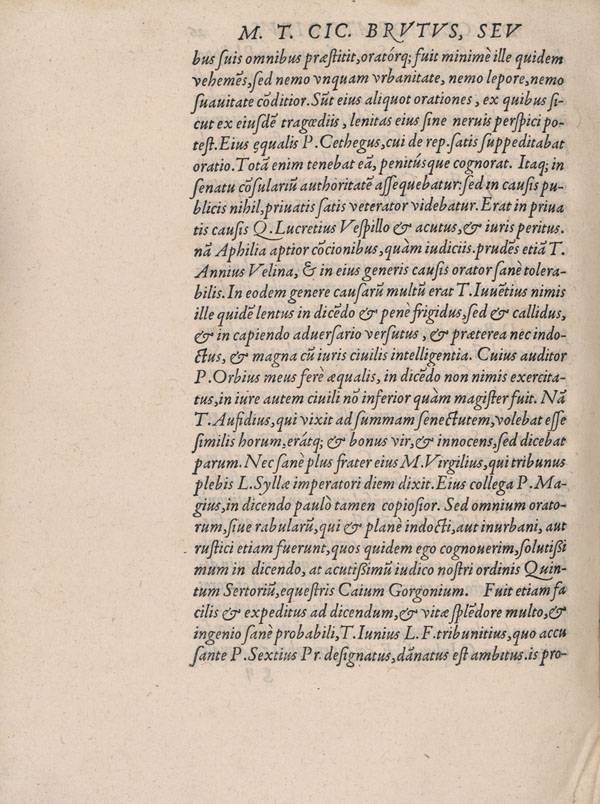 M. T. CIC. BRVTVS, SEV
bus suis omnibus præstitit, oratórq; fuit minimè ille quidem
vehemẽs, sed nemo vnquam vrbanitate, nemo lepore, nemo
suauitate cõditior. Sũt eius aliquot orationes, ex quibus si-
cut ex eiusdẽ tragœdiis, lenitas eius sine neruis perspici po-
test. Eius ęqualis P. Cethegus, cui de rep. satis suppeditabat
oratio. Totã enim tenebat eã, penitúsque cognorat. Itaq; in
senatu cõsulariũ authoritatẽ assequebatur: sed in causis pu-
blicis nihil, priuatis satis veterator videbatur. Erat in priua
tis causis Q. Lucretius Vespillo & acutus, & iuris peritus.
nã Aphilia aptior cõcionibus, quàm iudiciis. prudẽs etiã T.
Annius Velina, & in eius generis causis orator sanè tolera-
bilis. In eodem genere causarũ multũ erat T. Iuuẽtius nimis
ille quidẽ lentus in dicẽdo & penè frigidus, sed & callidus,
& in capiendo aduersario versutus, & præterea nec indo-
ctus, & magna cũ iuris ciuilis intelligentia. Cuius auditor
P. Orbius meus ferè æqualis, in dicẽdo non nimis exercita-
tus, in iure autem ciuili nõ inferior quàm magister fuit. Nã
T. Aufidius, qui vixit ad summam senectutem, volebat esse
similis horum, erátq; & bonus vir, & innocens, sed dicebat
parum. Nec sanè plus frater eius M. Virgilius, qui tribunus
plebis L. Syllæ imperatori diem dixit. Eius collega P. Ma-
gius, in dicendo paulò tamen copiosior. Sed omnium orato-
rum, siue rabularũ, qui & planè indocti, aut inurbani, aut
rustici etiam fuerunt, quos quidem ego cognouerim, solutißi
mum in dicendo, at acutißimũ iudico nostri ordinis Quin-
tum Sertoriũ, equestris Caium Gorgonium. Fuit etiam fa
cilis & expeditus ad dicendum, & vitæ splẽdore multo, &
ingenio sanè probabili, T. Iunius L. F. tribunitius, quo accu
sante P. Sextius Pr. designatus, dãnatus est ambitus. is pro-